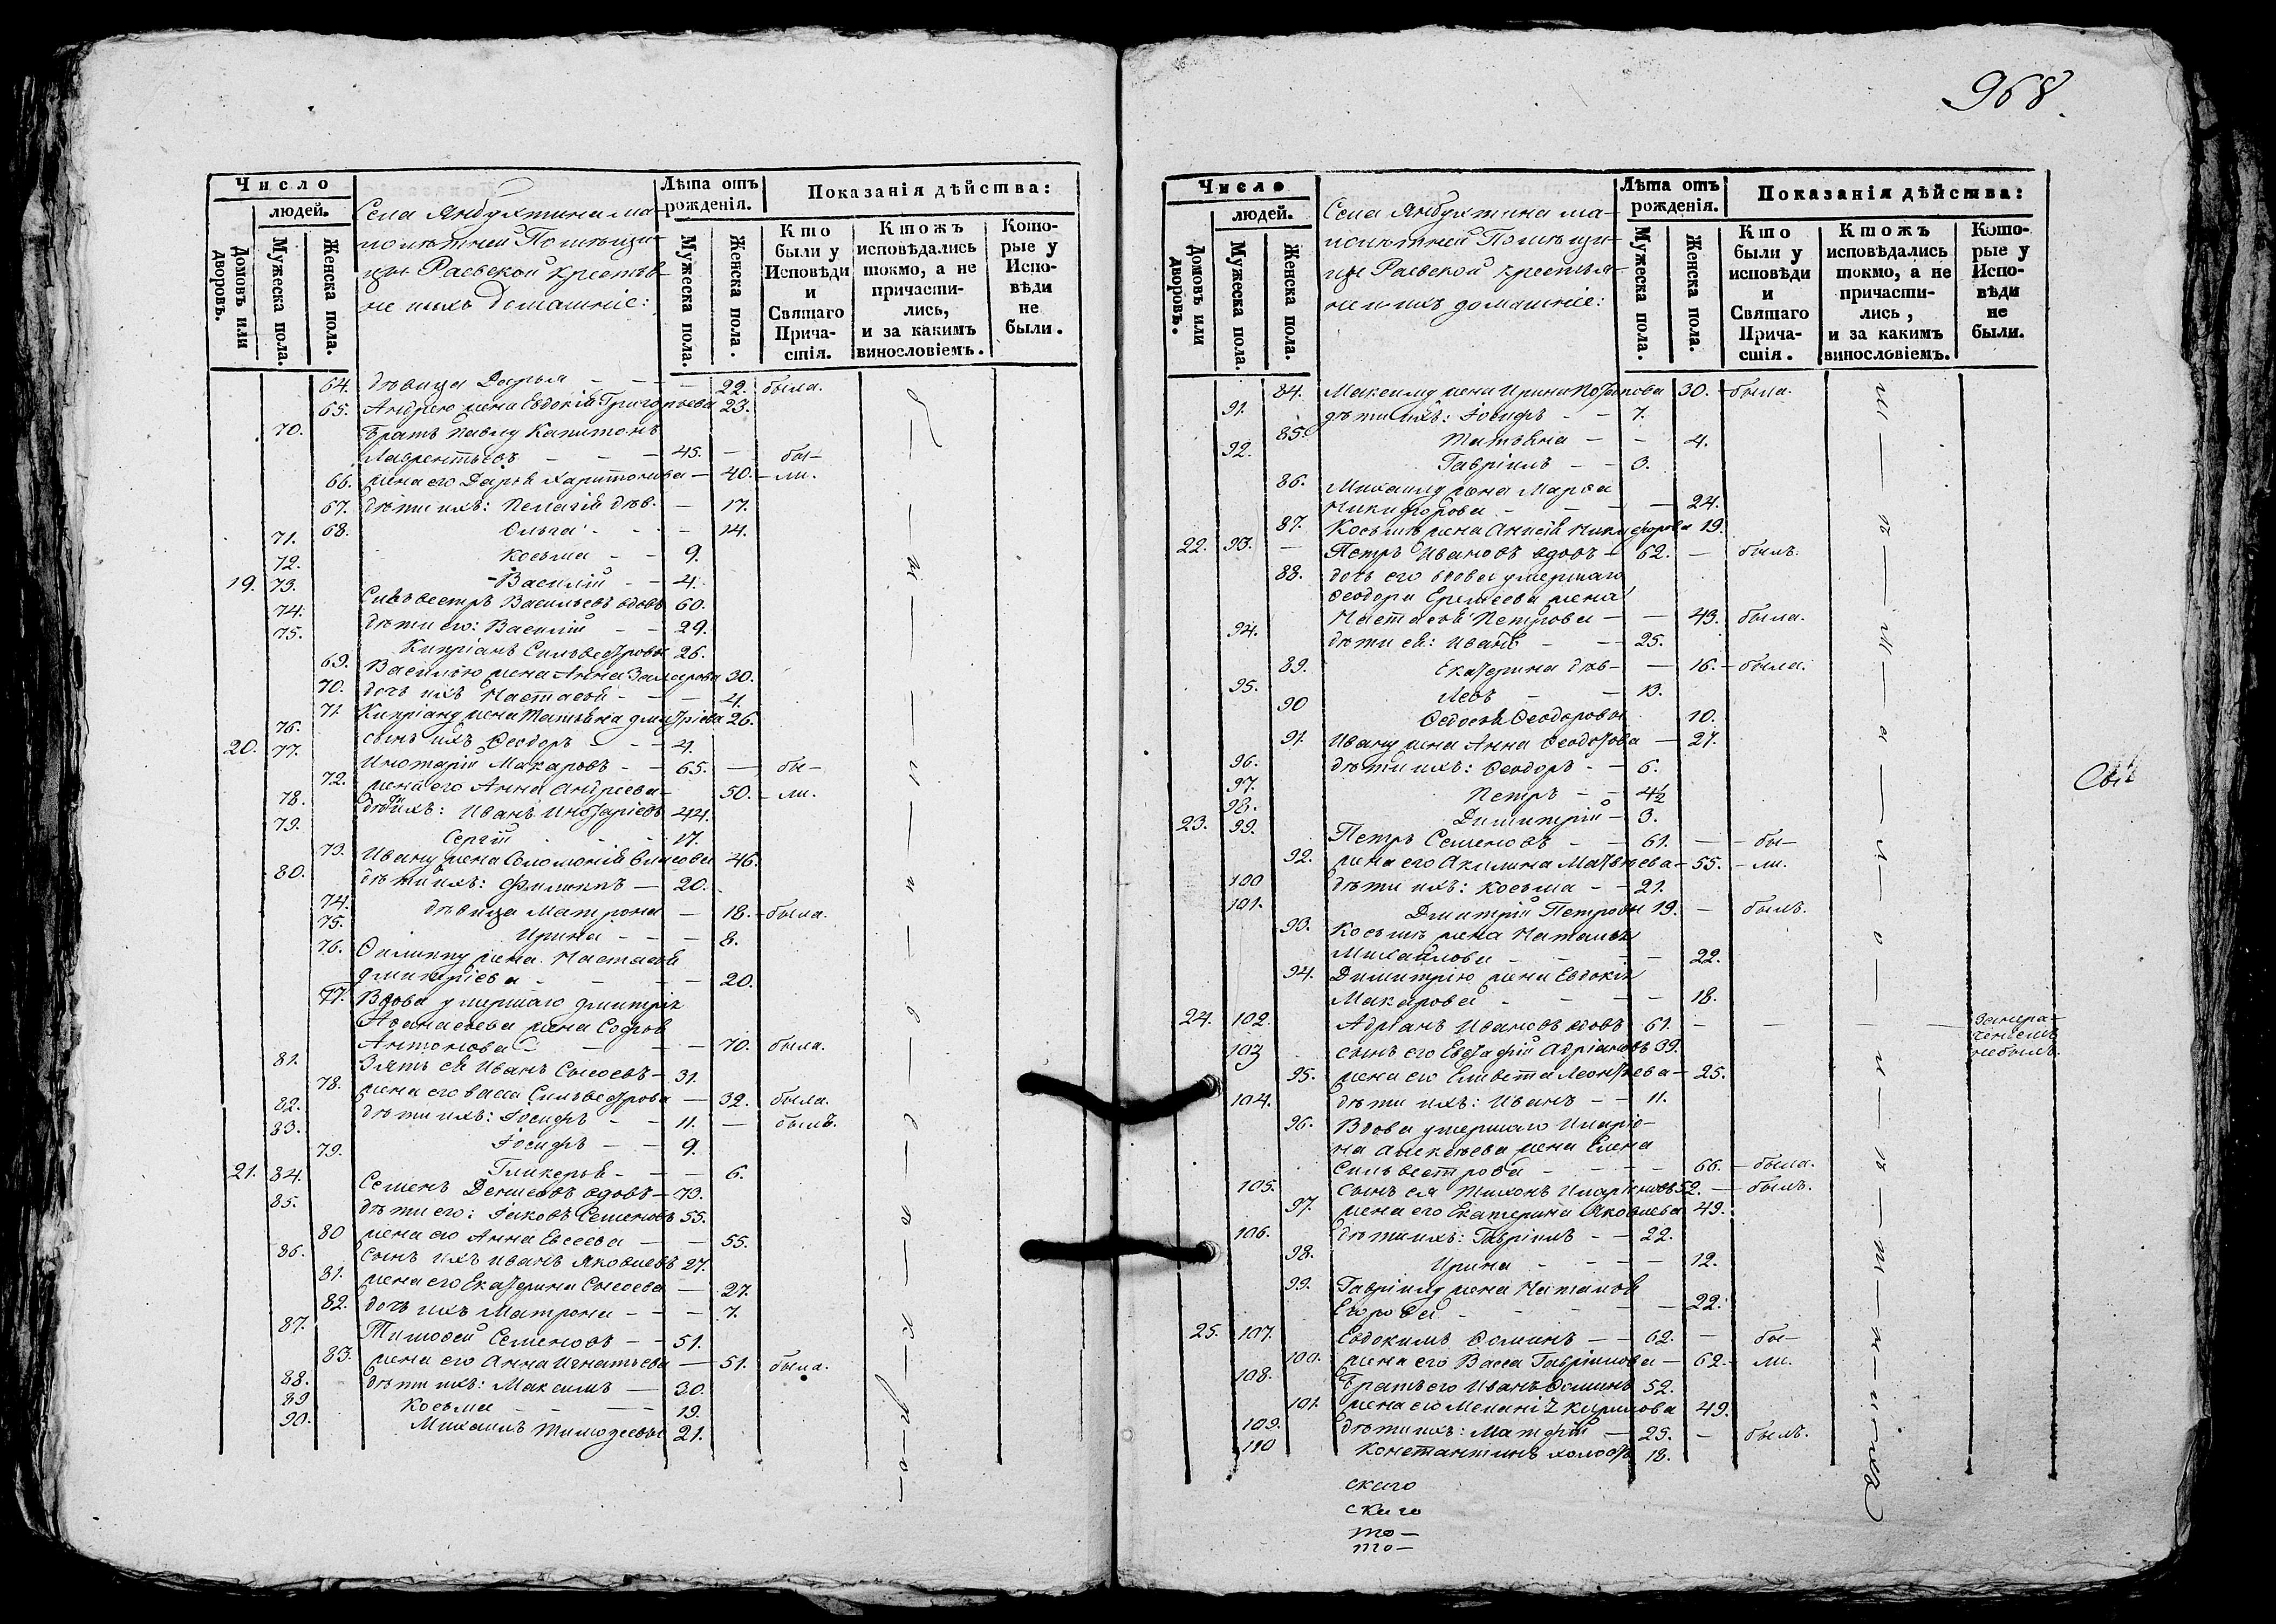 968.
Число
людей.
Домовъ или дворовъ.
Мужеска пола.
Женска пола.
Села Янбухтина ма-
лолѣтней Помѣщи-
цы Раевской крестья-
не и ихъ домашніе:
Лѣта отъ рожденія.
Мужеска пола.
Женска пола.
Показанія дѣйства:
Кто были у Исповѣди и Святаго Причастія.
Ктожъ исповѣдались токмо, а не причастились, и за какимъ винословіемъ.
Которые у Исповѣди не были.
64. дѣвица Дарья - - - 22. была.
65. Андрею жена Евдокія Григорьева 23.
70. Братъ Павлу Капитонъ
Лаврентьевъ - - - 45. - бы-
66. жена его Дарья Харитонова - 40. - ли.
67. дѣти ихъ: Пелагія дѣв. - 17.
68. Ольга - - - 14.
71. Косьма - - 9.
72. Василій - - 4.
19. 73. Сильвестръ Васильевъ вдовъ 60.
74. дѣти его: Василій - - 29.
75. Кипріанъ Сильвестровы 26.
69. Василію жена Анна Захарова 30.
70. дочь ихъ Настасья - - - 4.
71. Кипріану жена Татьяна Дмитріева 26.
76. сынъ ихъ Ѳеодоръ - - - 4.
20. 77. Макаровъ - - 65. - бы-
72. жена его Анна Андреева - 50. - ли.
78. дѣти ихъ: Иванъ 44.
79. Сергій - - - 17.
73. Ивану жена Соломонія Власова 46.
80. дѣти ихъ: Филиппъ - 20.
74. дѣвица Матрона - 18. - была.
75. Ирина - - - 8.
76. Филиппу жена Настасья
Дмитріева - - - - 20.
77. Вдова умершаго Дмитрія
Аѳанасьева жена Софья
Антонова - - - - 70. была.
81. Зять ея Иванъ Сысоевъ - 31.
78. жена его Васса Сильвестрова - 32. была.
82. дѣти ихъ: Іосифъ - - 11. - былъ.
83. Іосифъ - - 9.
79. Гликерья - - - 6.
21. 84. Семенъ Денисовъ вдовъ - 73.
85. дѣти его: Іаковъ Семеновъ 55.
80 жена его Анна Евсеева - - 55.
86. сынъ ихъ Иванъ Яковлевъ 27.
81. жена его Екатерина Сысоева - 27.
82. дочь ихъ Матрона - - - 7.
87. Тимоѳей Семеновъ - - 51.
83. жена его Анна Игнатьева - 51. была.
88. дѣти ихъ: Максимъ - 30.
89 Косьма - - - 19.
90. Михаилъ Тимоѳеевы 21.
Число
людей.
Домовъ или дворовъ.
Мужеска пола.
Женска пола.
Села Янбухтина ма-
лолѣтней Помѣщи-
цы Раевской крестья-
не и ихъ домашніе:
Лѣта отъ рожденія.
Мужеска пола.
Женска пола.
Показанія дѣйства:
Кто были у исповѣди и Святаго Причастія.
Ктожъ исповѣдались токмо, а не причастились, и за какимъ винословіемъ.
Которые у Исповѣди не были.
84. Максиму жена Ирина 30. - была.
91. дѣти ихъ: Іосифъ - - 7.
85. Татьяна - - 4.
92. Гавріилъ - - 3.
86. Михаилу жена Марѳа
Никифорова - - - - 24.
87. Косьмѣ жена Анисія Никифорова 19.
22. 93. - Петръ Ивановъ вдовъ - 62. - былъ.
88. дочь его вдова умершаго
Ѳеодора Еремеева жена
Настасья Петрова - - 43. была.
94. дѣти ея: Иванъ - - - 25.
89. Екатерина дѣв. - - 16. - была.
95. Левъ - - 13.
90 Ѳедосья Ѳеодоровы 10.
91. Ивану жена Анна - 27.
96. дѣти ихъ: Ѳеодоръ - - 6.
97. Петръ - - 4½
98. Димитрій - 3.
23. 99. Петръ Семеновъ - - 61. - - бы-
92. жена его Акилина Матвѣева - 55. - ли.
100 дѣти ихъ: Косьма - - 21.
101. Дмитрій Петровы 19. - былъ.
93. Косьмѣ жена Наталья
Михайлова - - - - 22.
94. Димитрію жена Евдокія
Макарова - - - - 18.
24. 102. Адріанъ Ивановъ вдовъ 61. - - - -
не былъ.
103 сынъ его Евстафій Адріановъ 39.
95. жена его Елисавета Леонтьева - 25.
104. дѣти ихъ: Иванъ - - 11.
96. Вдова умершаго Иларіо-
на Алексѣева жена Елена
Сильвестрова - - - - 66. - была.
105. сынъ ея Тихонъ Иларіоновъ 52. - былъ.
97. жена его Екатерина Яковлева 49.
106. дѣти ихъ: Гавріилъ - - 22.
98. Ирина - - - - 12.
99. Гавріилу жена Наталья
Егорова - - - - - 22.
25. 107. Евдокимъ Ѳоминъ - - 62. - бы-
100. жена его Васса Гавріилова - 62. - ли.
108. Братъ его Иванъ Ѳоминъ 52.
101 жена его Меланія Кирилова 49.
109. дѣти ихъ: Матѳій - 25. - былъ.
110 Константинъ холостъ 18.
скаго
скаго
то-
то-